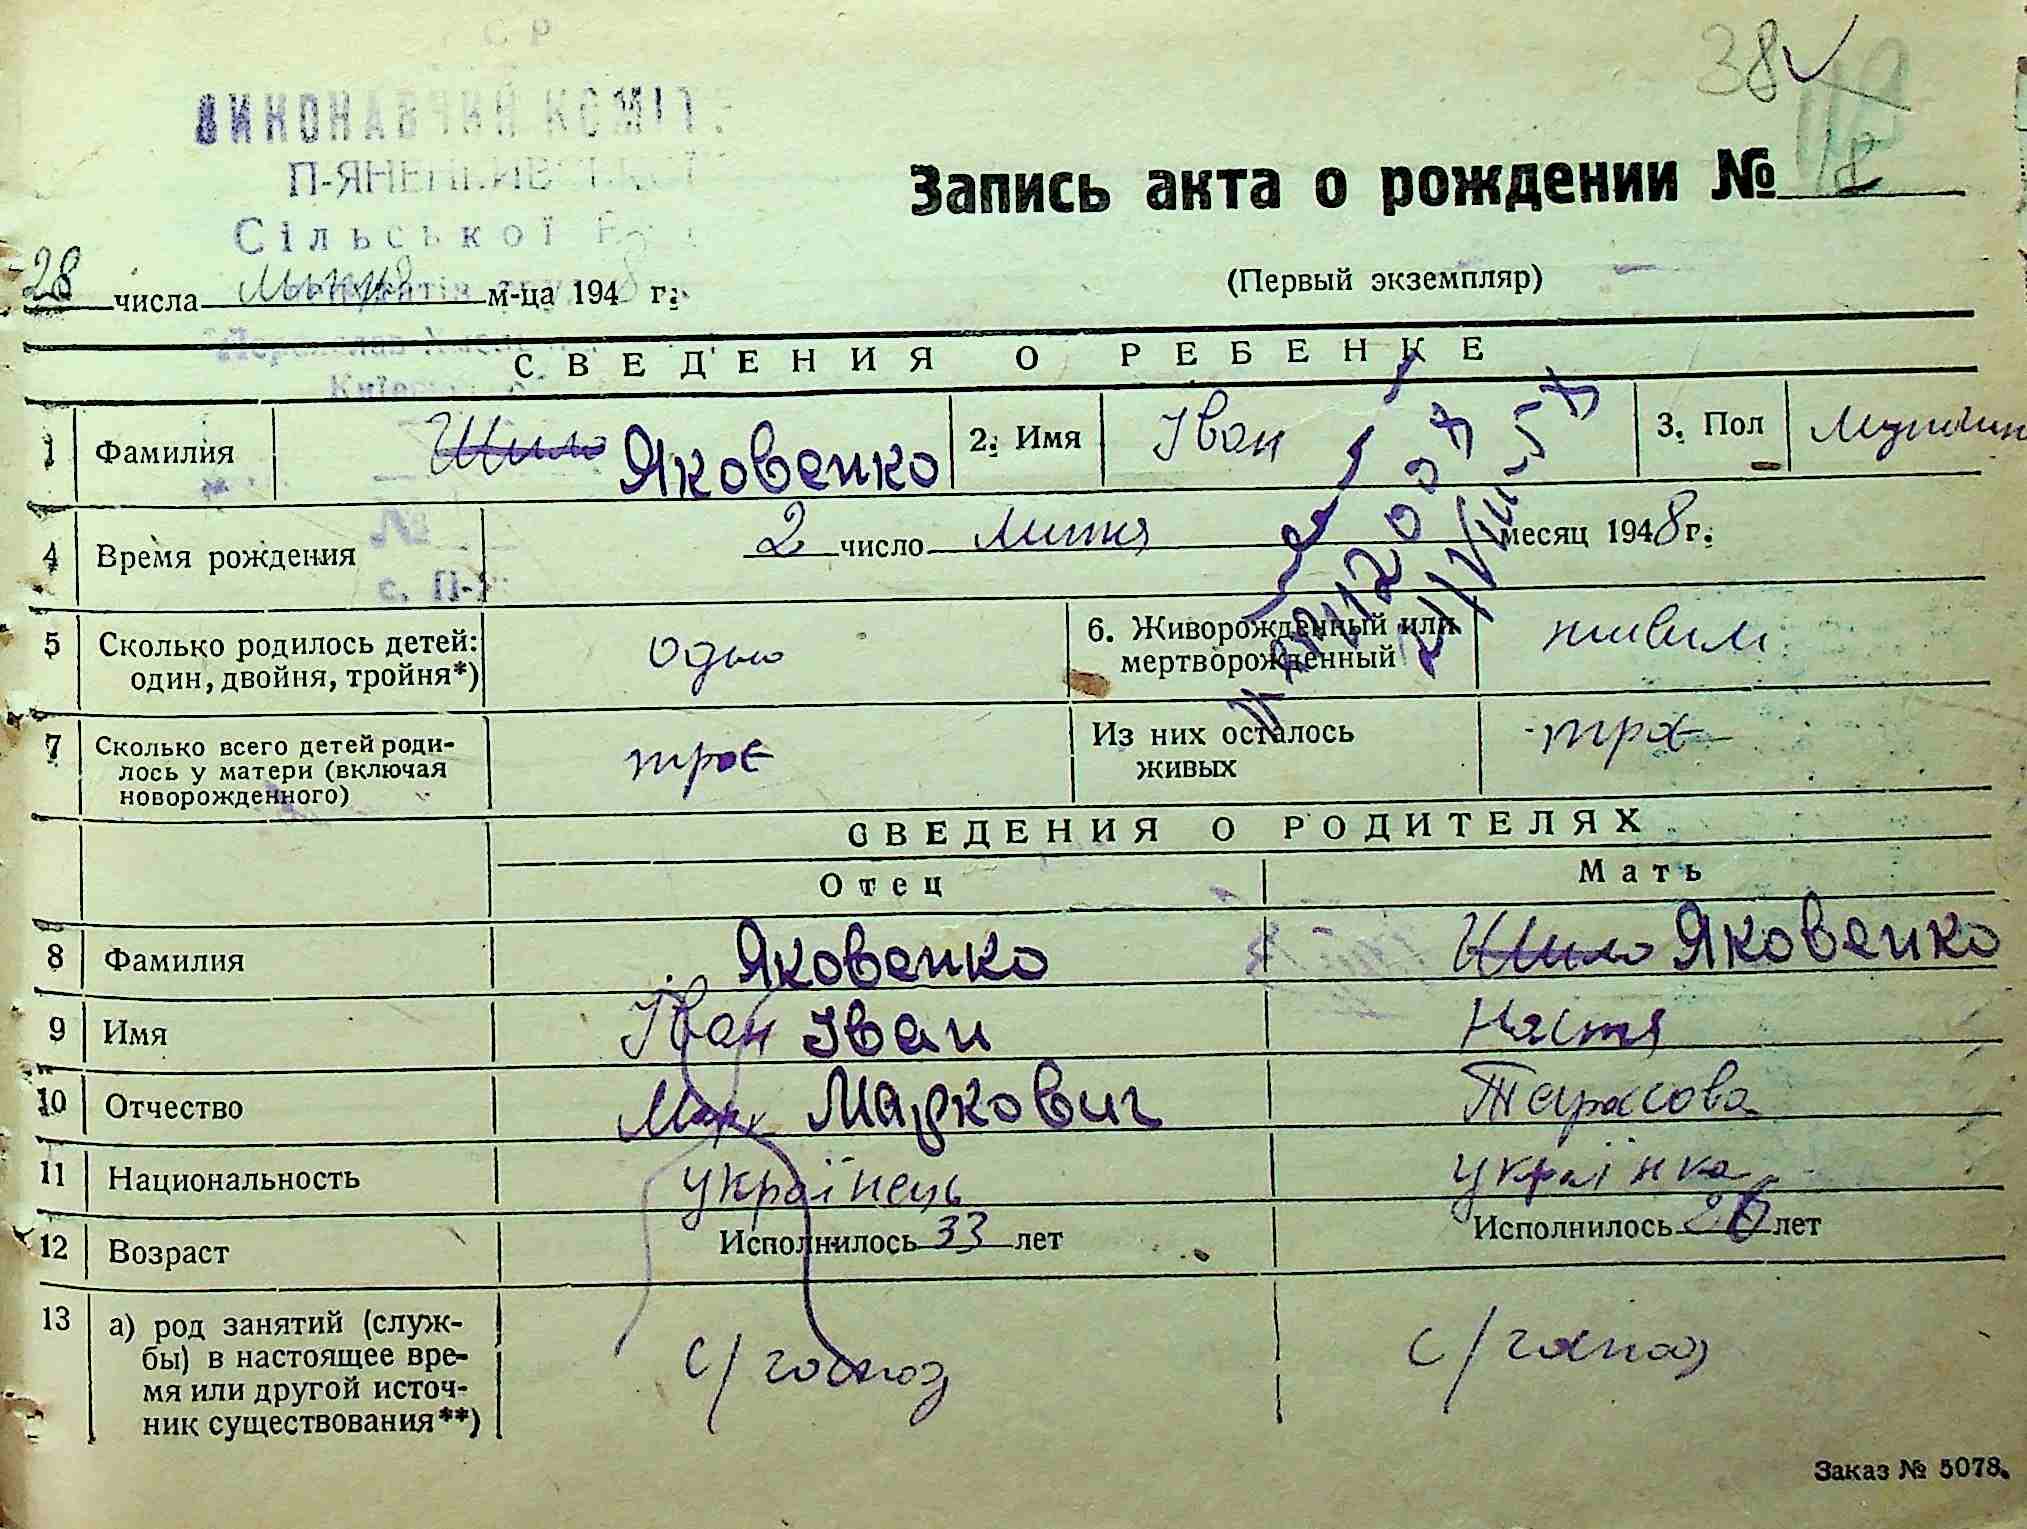 СР
ВИКОНАВЧИЙ КОМІТ
П-ЯНЕНКІВСЬКОЇ
Сільської
38
Запись акта о рождении № 18
(Первый экземпляр)
28 числа липня м-ца 1948 г.
СВЕДЕНИЯ О РЕБЕНКЕ
1 Фамилия Шило Яковенко 2. Имя Іван 3. Пол
4 Время рождения 2 число липня месяц 1948 г.
№
с. П-Я
5 Сколько родилось детей: один, двойня, тройня*) одно 6. Живорожденный или мертворожденный живим
7 Сколько всего детей родилось у матери (включая новорожденного) троє Из них осталось живых троє
СВЕДЕНИЯ О РОДИТЕЛЯХ
Отец Мать
8 Фамилия Яковенко Шило Яковенко
9 Имя Іван Іван Настя
10 Отчество Марк Маркович Тарасова
11 Национальность українець українка
12 Возраст Исполнилось 33 лет Исполнилось 26 лет
13 а) род занятий (служ-
бы) в настоящее вре-
мя или другой источ-
ник существования**)
с/господ с/господ
Заказ № 5078.